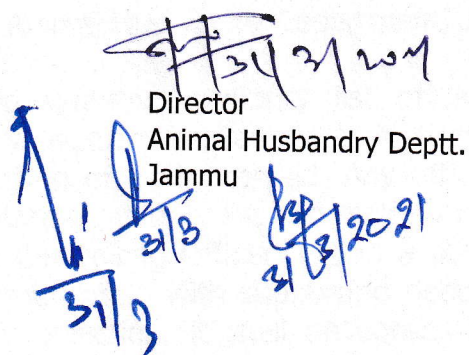 31/3/2021
Director
Animal Husbandry Deptt.
Jammu
31/3
31/3/2021
31/3